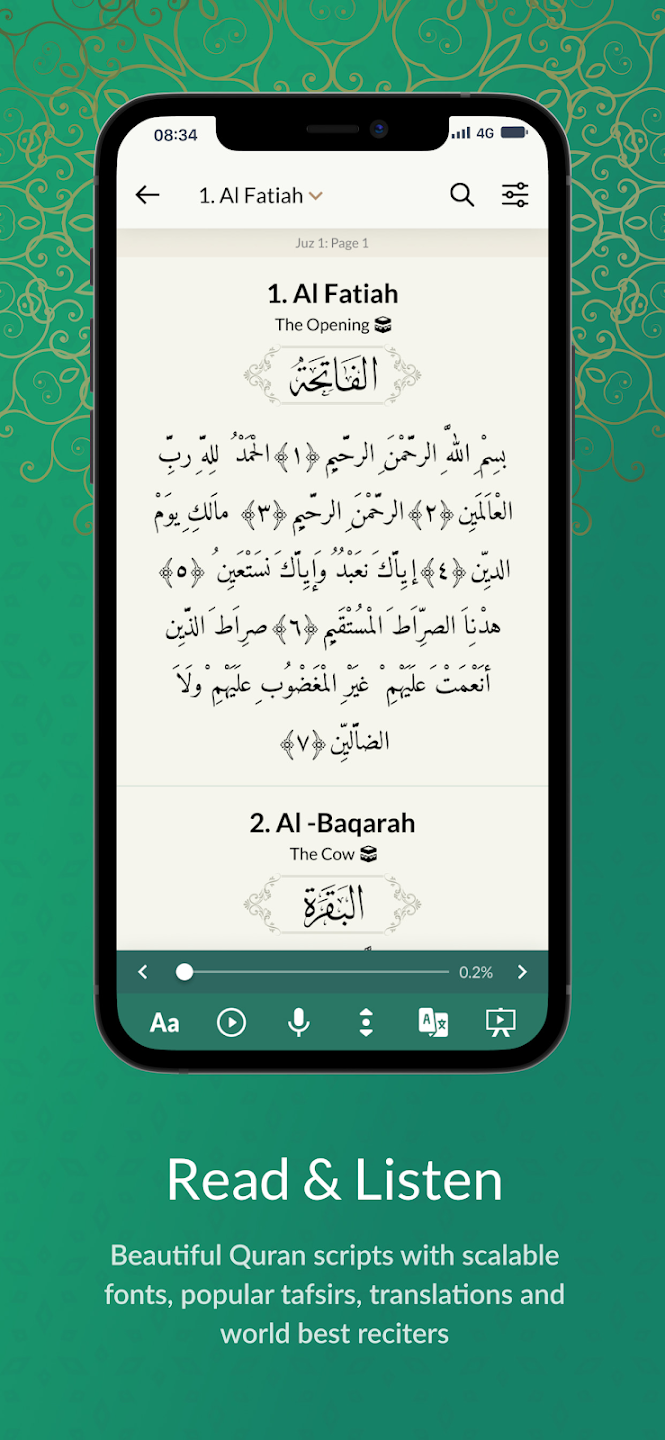 08:34
4G
1. Al Fatiah
Juz 1: Page 1
1. Al Fatiah
The Opening
الفَاتِحَةُ
بِسْمِ اللَّهِ الرَّحْمَٰنِ الرَّحِيمِ ﴿١﴾ الْحَمْدُ لِلَّهِ رَبِّ
الْعَالَمِينَ ﴿٢﴾ الرَّحْمَٰنِ الرَّحِيمِ ﴿٣﴾ مَالِكِ يَوْمِ
الدِّينِ ﴿٤﴾ إِيَّاكَ نَعْبُدُ وَإِيَّاكَ نَسْتَعِينُ ﴿٥﴾
هدْنَا الصِّرَاطَ الْمُسْتَقِيمَ ﴿٦﴾ صِرَاطَ الَّذِينَ
أَنْعَمْتَ عَلَيْهِمْ غَيْرِ الْمَغْضُوبِ عَلَيْهِمْ وَلَا
الضَّالِّينَ ﴿٧﴾
2. Al -Baqarah
The Cow
البَقَرَة
0.2%
Aa
A
Read & Listen
Beautiful Quran scripts with scalable
fonts, popular tafsirs, translations and
world best reciters